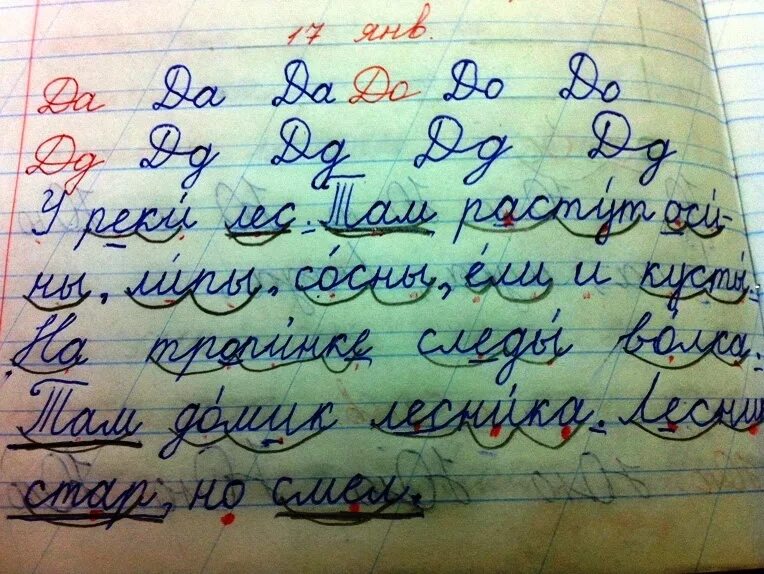 17 янв.
Да Да Да До До До
Дд Дд Дд Дд Дд
У реки́ лес. Там расту́т оси́-
ны, ли́пы, со́сны, е́ли и кусты́.
На тропи́нке следы́ во́лка.
Там до́мик лесни́ка. Лесник
стар, но смел.